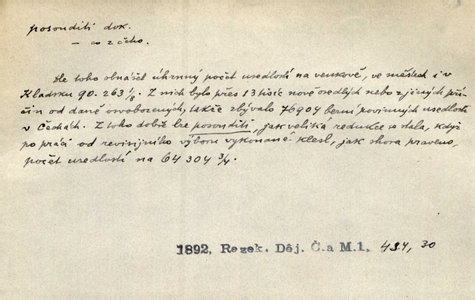 posouditi dok.
— co z čeho.
Dle toho obnášel úhrnný počet usedlostí na venkově, ve městech i v
Kladsku 90.263 1/8. Z nich bylo přes 13 tisíc nově osedlých nebo z jiných pří-
čin od daně osvobozených, takže zbývalo 76904 berni povinných usedlostí
v Čechách. Z toho dobře lze posouditi, jak veliká redukce se stala, když
po práci od revisijního výboru vykonané klesl, jak shora praveno,
počet usedlostí na 64 304 3/4.
1892, Rezek. Děj. Č.a M.1, 434, 30